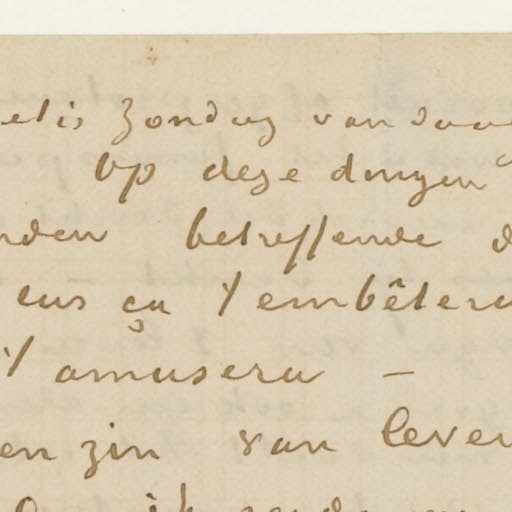 et is Zondag vandaa
Op deze dingen
nden betreffende d
eus ça t'embêtera
t'amusera –
en zin van leven
ik